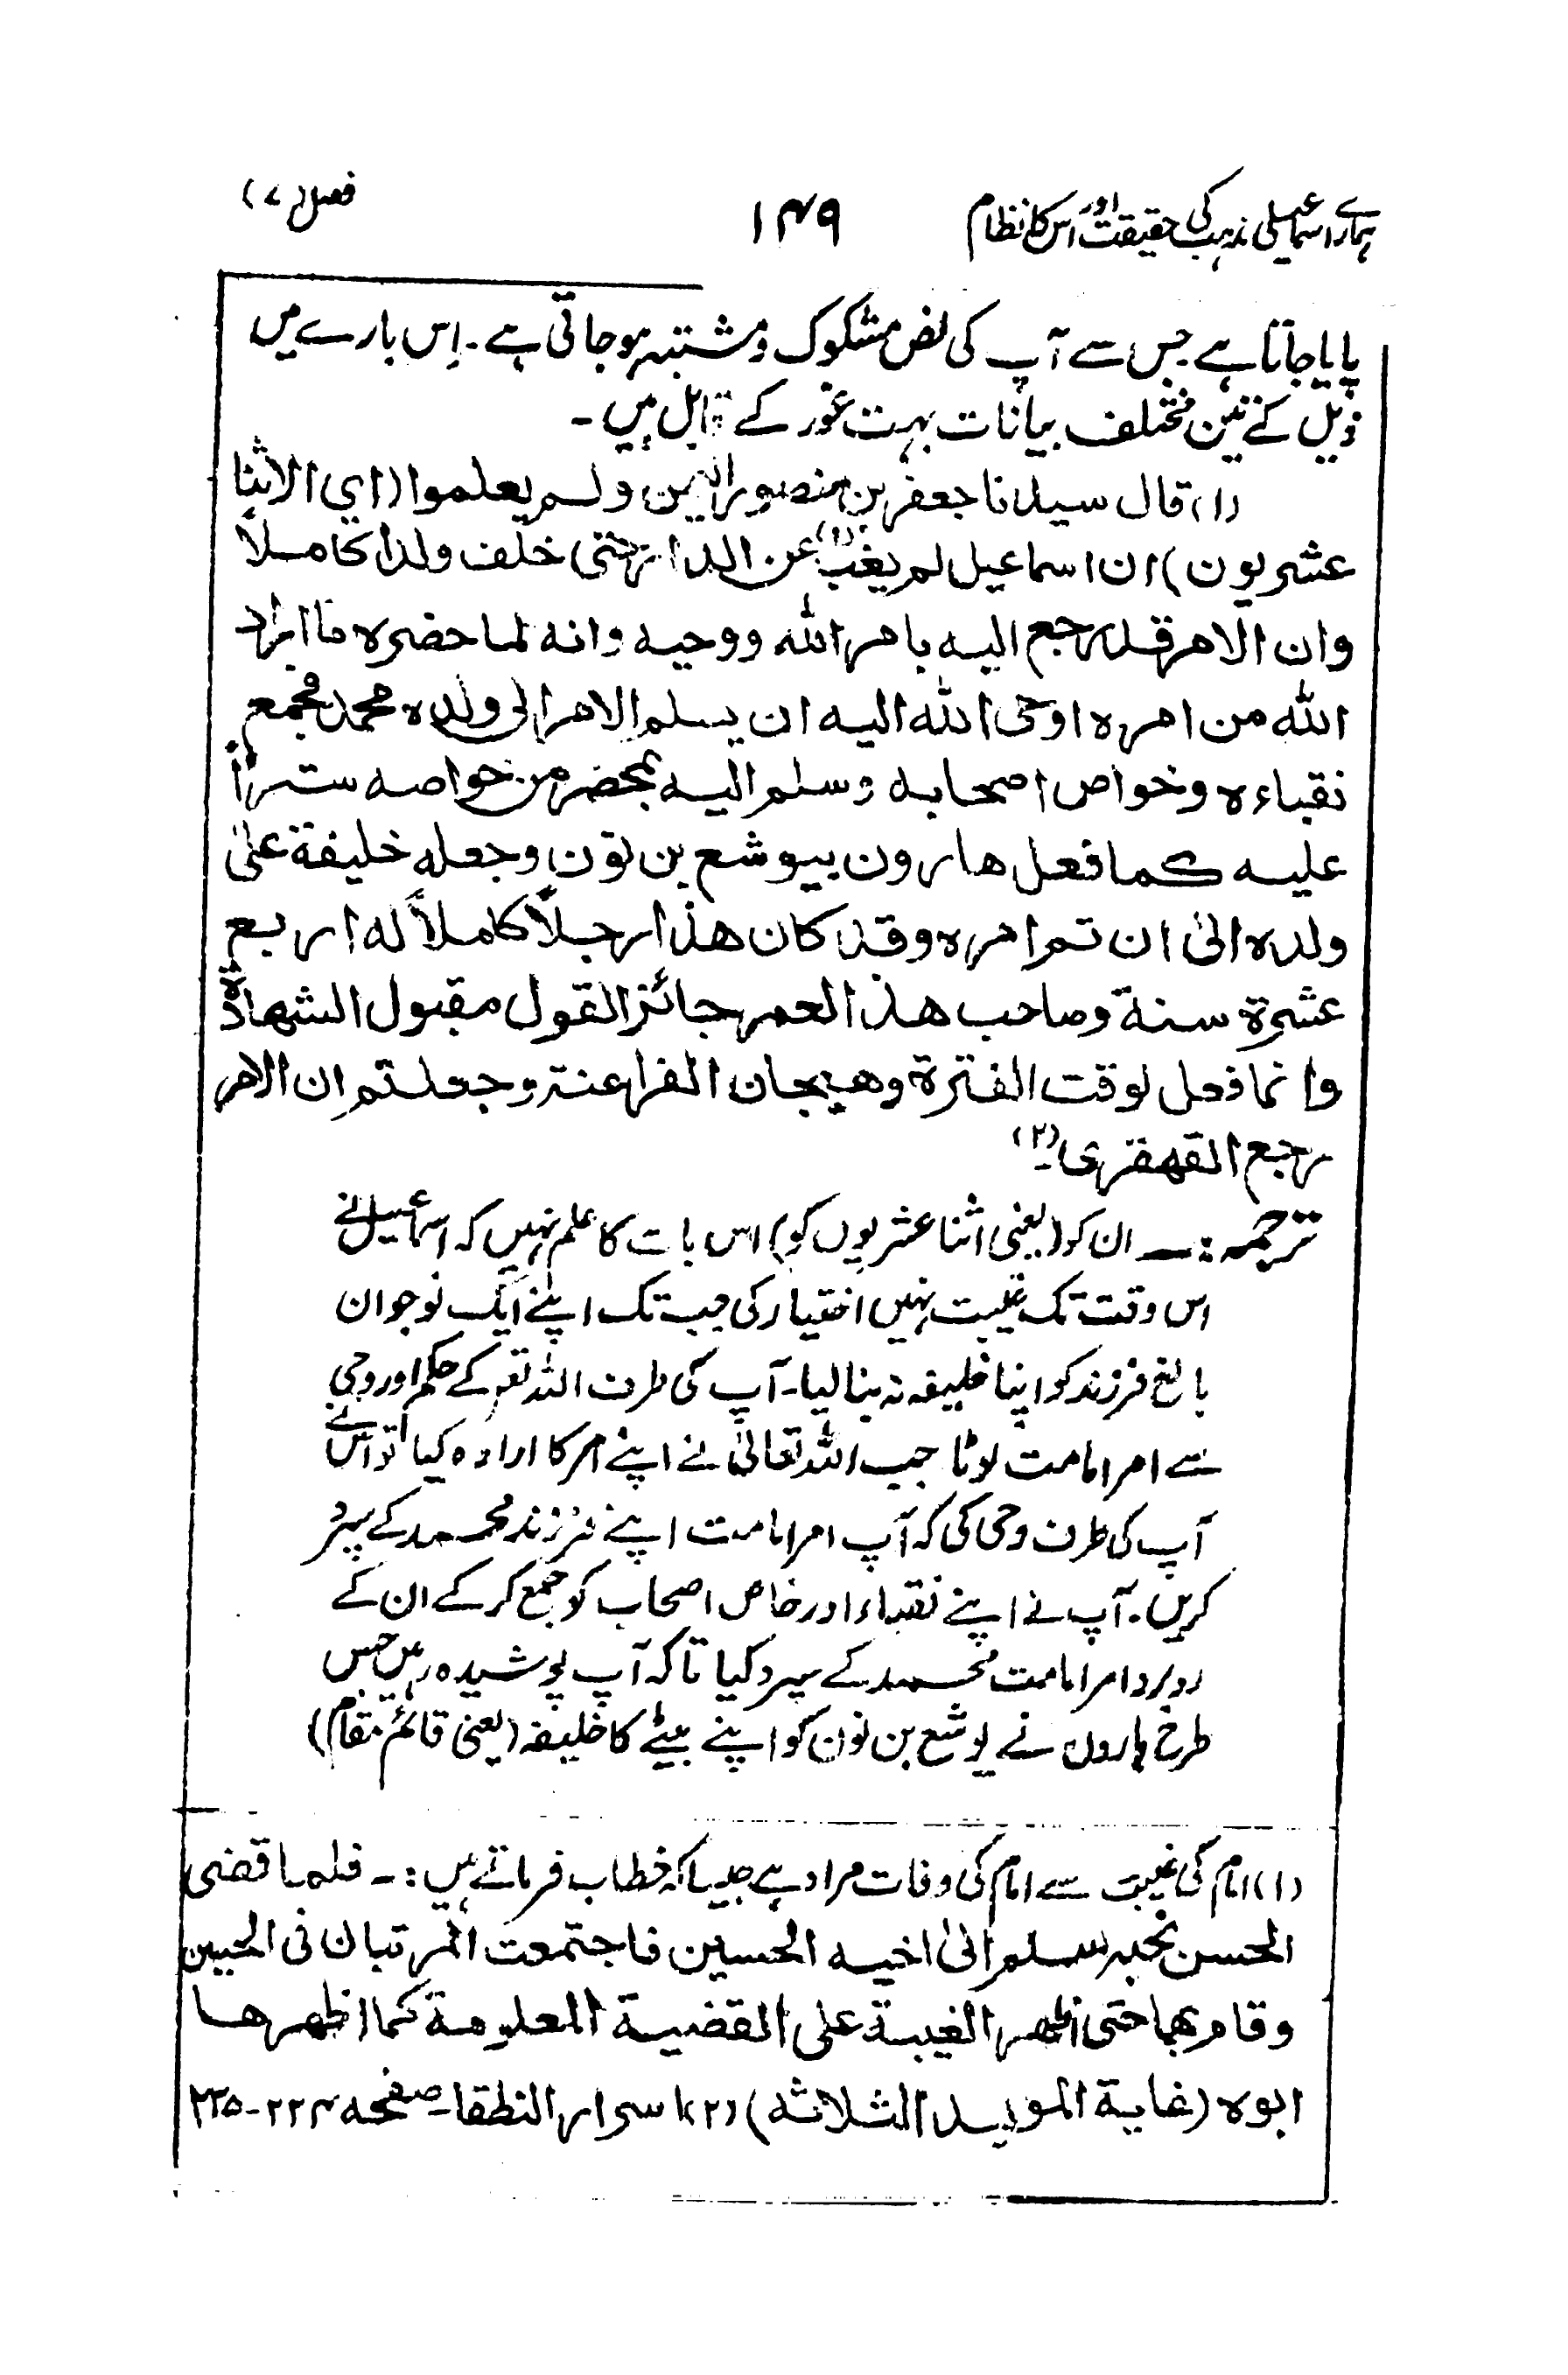 ہمارے اسماعیلی مذہب کی حقیقت اور اس کا نظام ۱۴۹ فصل (۷)
پایا جاتا ہے جس سے آپ کی نص مشکوک و مشتبہ ہو جاتی ہے ۔ اِس بارے میں
ذیل کے تین مختلف بیانات بہت غور کے قابل ہیں ۔
(۱) قال سیدنا جعفر بن منصور الیمن ولم یعلموا (ای الاثنا
عشریون) ان اسماعیل لم یغب (۱) عن الدار حتی خلف ولداً کاملاً
وان الامر قد رجع الیہ بامر اللہ ووحیہ وانہ لما حضرہ ما اراد
اللہ من امرہ اوحی اللہ الیہ ان یسلم الامر الی ولدہ محمد فجمع
نقباءہ وخواص اصحابہ وسلم الیہ بمحضر من خواصہ ستراً
علیہ کما فعل ھارون بیوشع بن نون وجعلہ خلیفۃ علیٰ
ولدہ الیٰ ان تم امرہ وقد کان ھذا رجلاً کاملاً لہ اربع
عشرۃ سنۃ وصاحب ھذا العمر جائز القول مقبول الشھادۃ
وانما فعل لوقت الفترۃ وھیجان الفراعنۃ وجعلتم ان الامر
رجع القھقری ۔ (۲)
ترجمہ :۔ ان کو (یعنی اثنا عشریوں کو) اس بات کا علم نہیں کہ اسماعیل نے
اس وقت تک غیبت نہیں اختیار کی جب تک اپنے ایک نوجوان
بالغ فرزند کو اپنا خلیفہ نہ بنا لیا ۔ آپ کی طرف اللہ تعہ کے حکم اور وحی
سے امر امامت لوٹا جب اللہ تعالیٰ نے اپنے امر کا ارادہ کیا تو اس نے
آپ کی طرف وحی کی کہ آپ امر امامت اپنے فرزند محمد کے سپرد
کریں ۔ آپ نے اپنے نقباء اور خاص اصحاب کو جمع کر کے ان کے
روبرو امر امامت محمد کے سپرد کیا تاکہ آپ پوشیدہ رہیں جس
طرح ہارون نے یوشع بن نون کو اپنے بیٹے کا خلیفہ (یعنی قائم مقام)
(۱) امام کی غیبت سے امام کی وفات مراد ہے جیسا کہ خطاب فرماتے ہیں :۔ فلما قضی
الحسن نحبہ سلم الیٰ اخیہ الحسین فاجتمعت المرتبان فی الحسین
وقام بھما حتی اظھر الغیبۃ علی القضیۃ المعلومۃ کما اظھرھا
ابوہ (غایۃ الموالید الثلاثہ) (۲) اسرار النطقا ۔ صفحہ ۲۲۴-۲۲۵